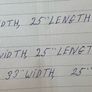 WIDTH, 25" LENGTH
WIDTH, 25" LENGT
33" WIDTH, 25"